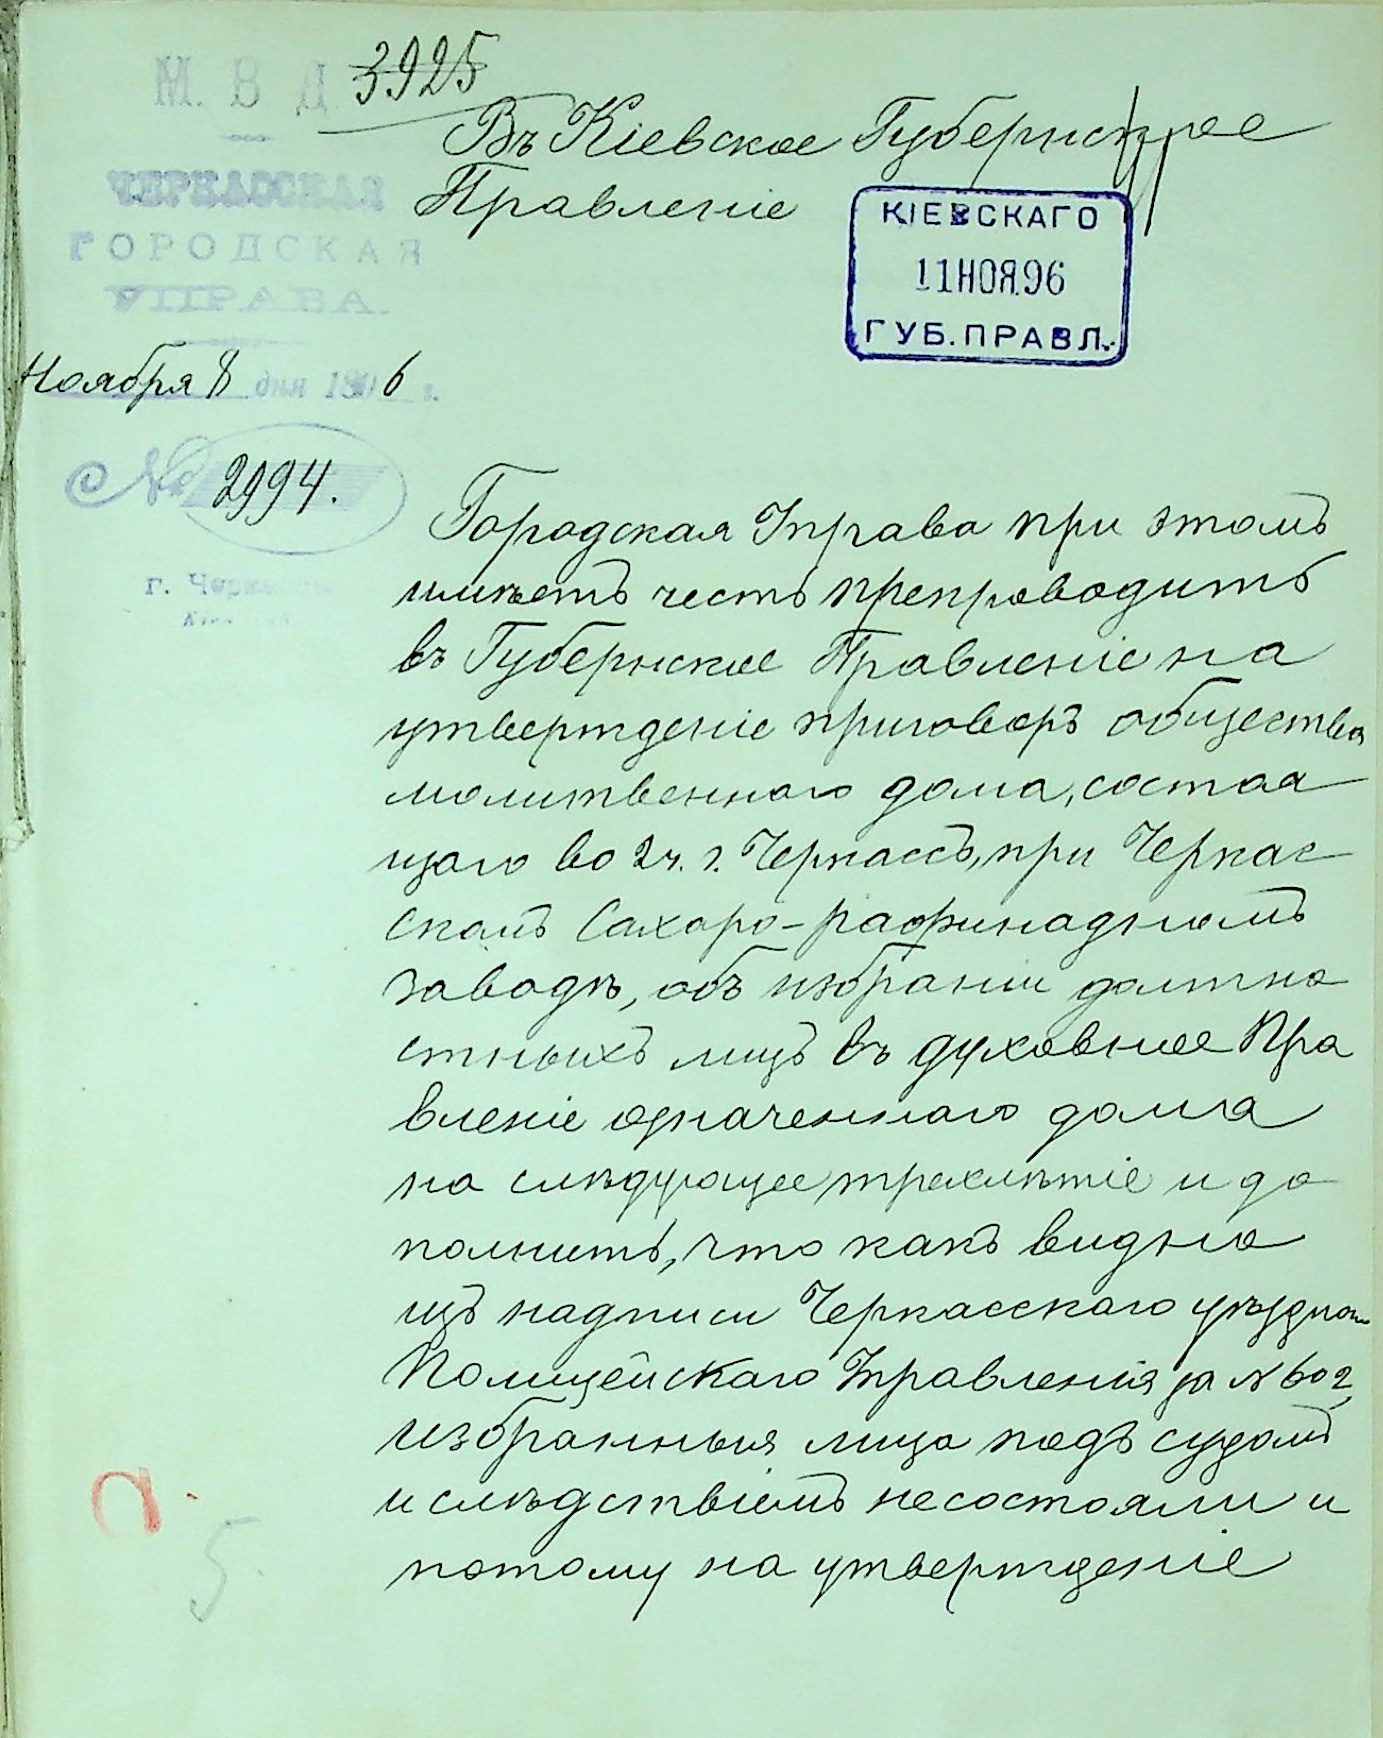 3925
М. В. Д.
Въ Кіевское Губернское
Правленіе
ЧЕРКАССКАЯ
ГОРОДСКАЯ
УПРАВА.
КІЕВСКАГО
11 НОЯ. 96
ГУБ. ПРАВЛ.
Ноября 8 дня 1896 г.
№ 2994.
г. Черкассы
Городская Управа при этомъ
имѣетъ честь препроводить
въ Губернское Правленіе на
утвержденіе приговоръ общества
молитвеннаго дома, состоя
щаго во 2 ч. г. Черкассъ, при Черкас
скомъ Сахаро-рафинадномъ
заводѣ, объ избраніи должно
стныхъ лицъ въ духовное Пра
вленіе означеннаго дома
на слѣдующее трехлѣтіе и до
полнить, что какъ видно
изъ надписи Черкасскаго уѣзднаго
Полицейскаго Управленія за № 602,
избранныя лица подъ судомъ
и слѣдствіемъ несостояли и
потому на утвержденіе
5.